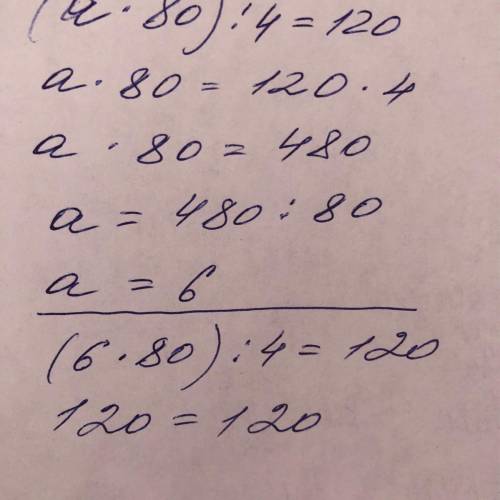 (a · 80) : 4 = 120
a · 80 = 120 · 4
a · 80 = 480
a = 480 : 80
a = 6
(6 · 80) : 4 = 120
120 = 120